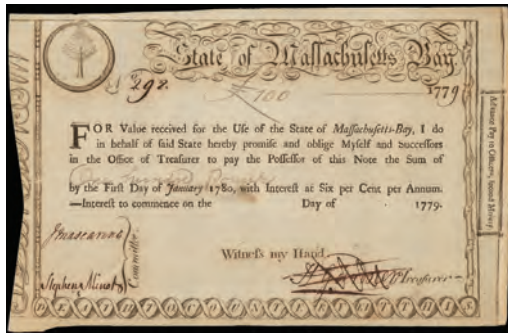 State of Massachusetts Bay.
292.
£100
1779
FOR Value received for the Use of the State of Massachusetts-Bay, I do
in behalf of said State hereby promise and oblige Myself and Successors
in the Office of Treasurer to pay the Possessor of this Note the Sum of
One Hundred Pounds
by the First Day of January 1780, with Interest at Six per Cent per Annum.
—Interest to commence on the Day of 1779.
J mascarene
Stephen Minot
Committee
Witness my Hand
Treasurer
DEATH TO COUNTERFEIT THIS
Advance Pay to Officers, Second Moiety.